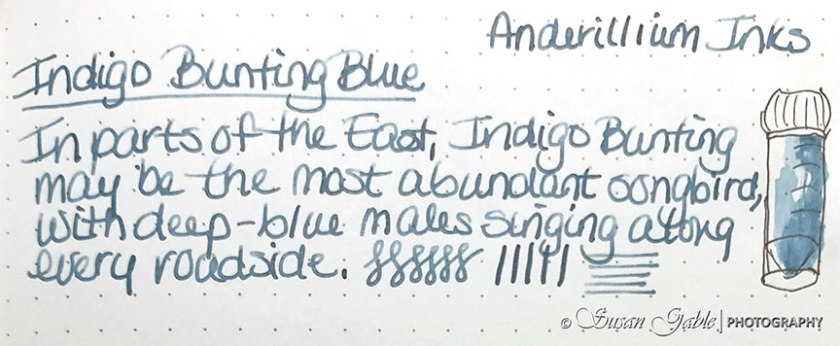 Anderillium Inks
Indigo Bunting Blue
In parts of the East, Indigo Bunting
may be the most abundant songbird,
with deep-blue males singing along
every roadside.
© Susan Gable | PHOTOGRAPHY